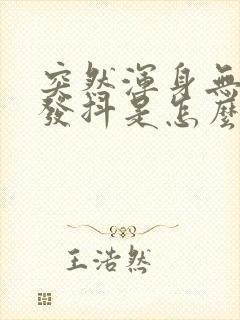 突然渾身無
發抖是怎麼
王浩然